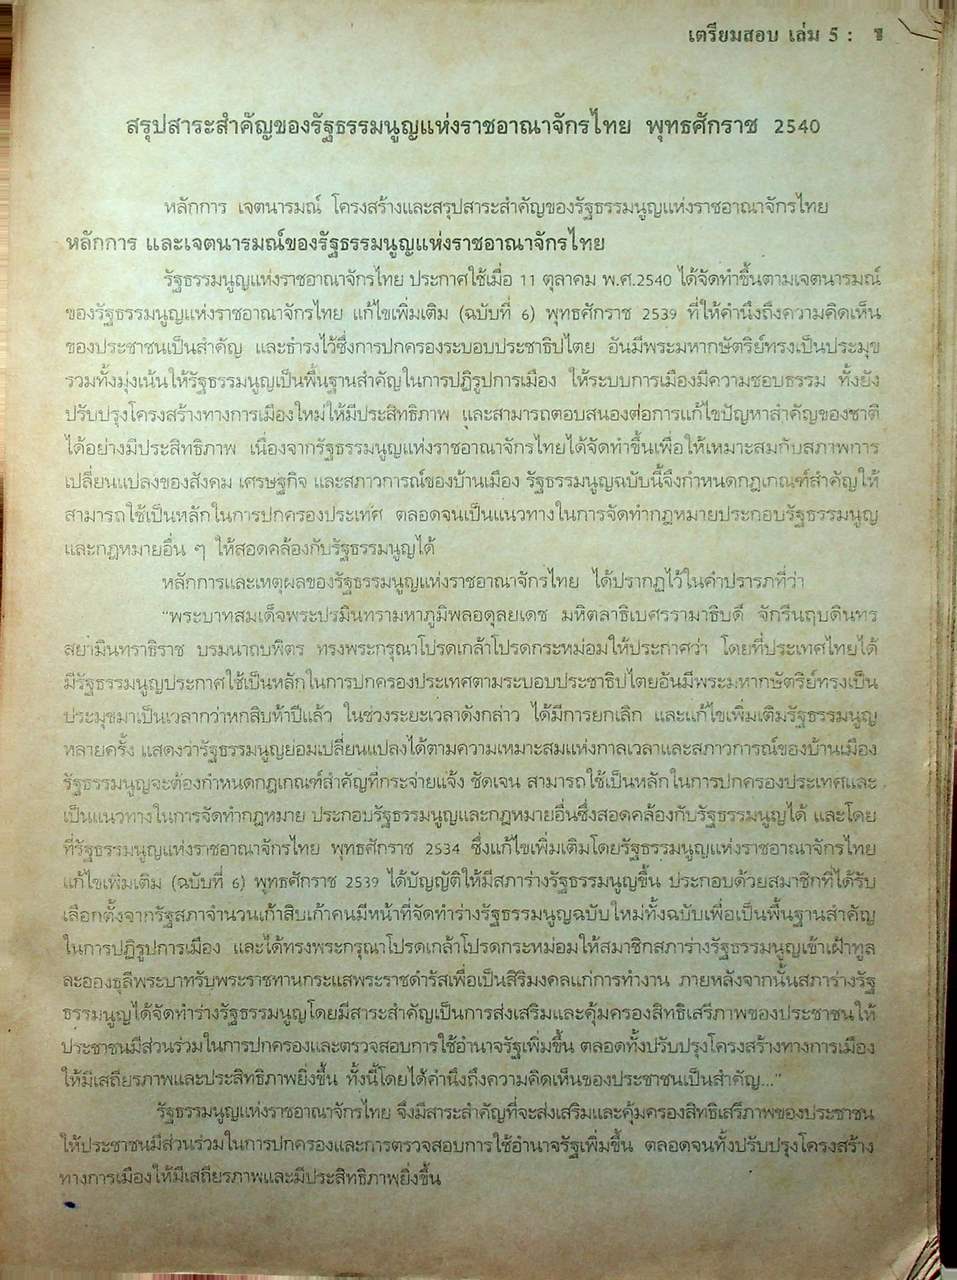 เตรียมสอบ เล่ม 5 :
สรุปสาระสำคัญของรัฐธรรมนูญแห่งราชอาณาจักรไทย พุทธศักราช 2540
หลักการ เจตนารมณ์ โครงสร้างและสรุปสาระสำคัญของรัฐธรรมนูญแห่งราชอาณาจักรไทย
หลักการ และเจตนารมณ์ของรัฐธรรมนูญแห่งราชอาณาจักรไทย
รัฐธรรมนูญแห่งราชอาณาจักรไทย ประกาศใช้เมื่อ 11 ตุลาคม พ.ศ.2540 ได้จัดทำขึ้นตามเจตนารมณ์
ของรัฐธรรมนูญแห่งราชอาณาจักรไทย แก้ไขเพิ่มเติม (ฉบับที่ 6) พุทธศักราช 2539 ที่ให้คำนึงถึงความคิดเห็น
ของประชาชนเป็นสำคัญ และธำรงไว้ซึ่งการปกครองระบอบประชาธิปไตย อันมีพระมหากษัตริย์ทรงเป็นประมุข
รวมทั้งมุ่งเน้นให้รัฐธรรมนูญเป็นพื้นฐานสำคัญในการปฏิรูปการเมือง ให้ระบบการเมืองมีความชอบธรรม ทั้งยัง
ปรับปรุงโครงสร้างทางการเมืองใหม่ให้มีประสิทธิภาพ และสามารถตอบสนองต่อการแก้ไขปัญหาสำคัญของชาติ
ได้อย่างมีประสิทธิภาพ เนื่องจากรัฐธรรมนูญแห่งราชอาณาจักรไทยได้จัดทำขึ้นเพื่อให้เหมาะสมกับสภาพการ
เปลี่ยนแปลงของสังคม เศรษฐกิจ และสภาวการณ์ของบ้านเมือง รัฐธรรมนูญฉบับนี้จึงกำหนดกฎเกณฑ์สำคัญให้
สามารถใช้เป็นหลักในการปกครองประเทศ ตลอดจนเป็นแนวทางในการจัดทำกฎหมายประกอบรัฐธรรมนูญ
และกฎหมายอื่น ๆ ให้สอดคล้องกับรัฐธรรมนูญได้
หลักการและเหตุผลของรัฐธรรมนูญแห่งราชอาณาจักรไทย ได้ปรากฏไว้ในคำปรารภที่ว่า
"พระบาทสมเด็จพระปรมินทรามหาภูมิพลอดุลยเดช มหิตลาธิเบศรรามาธิบดี จักรีนฤบดินทร
สยามินทราธิราช บรมนาถบพิตร ทรงพระกรุณาโปรดเกล้าโปรดกระหม่อมให้ประกาศว่า โดยที่ประเทศไทยได้
มีรัฐธรรมนูญประกาศใช้เป็นหลักในการปกครองประเทศตามระบอบประชาธิปไตยอันมีพระมหากษัตริย์ทรงเป็น
ประมุขมาเป็นเวลากว่าหกสิบห้าปีแล้ว ในช่วงระยะเวลาดังกล่าว ได้มีการยกเลิก และแก้ไขเพิ่มเติมรัฐธรรมนูญ
หลายครั้ง แสดงว่ารัฐธรรมนูญย่อมเปลี่ยนแปลงได้ตามความเหมาะสมแห่งกาลเวลาและสภาวการณ์ของบ้านเมือง
รัฐธรรมนูญจะต้องกำหนดกฎเกณฑ์สำคัญที่กระจ่ายแจ้ง ชัดเจน สามารถใช้เป็นหลักในการปกครองประเทศและ
เป็นแนวทางในการจัดทำกฎหมาย ประกอบรัฐธรรมนูญและกฎหมายอื่นซึ่งสอดคล้องกับรัฐธรรมนูญได้ และโดย
ที่รัฐธรรมนูญแห่งราชอาณาจักรไทย พุทธศักราช 2534 ซึ่งแก้ไขเพิ่มเติมโดยรัฐธรรมนูญแห่งราชอาณาจักรไทย
แก้ไขเพิ่มเติม (ฉบับที่ 6) พุทธศักราช 2539 ได้บัญญัติให้มีสภาร่างรัฐธรรมนูญขึ้น ประกอบด้วยสมาชิกที่ได้รับ
เลือกตั้งจากรัฐสภาจำนวนเก้าสิบเก้าคนมีหน้าที่จัดทำร่างรัฐธรรมนูญฉบับใหม่ทั้งฉบับเพื่อเป็นพื้นฐานสำคัญ
ในการปฏิรูปการเมือง และได้ทรงพระกรุณาโปรดเกล้าโปรดกระหม่อมให้สมาชิกสภาร่างรัฐธรรมนูญเข้าเฝ้าทูล
ละอองธุลีพระบาทรับพระราชทานกระแสพระราชดำรัสเพื่อเป็นสิริมงคลแก่การทำงาน ภายหลังจากนั้นสภาร่างรัฐ
ธรรมนูญได้จัดทำร่างรัฐธรรมนูญโดยมีสาระสำคัญเป็นการส่งเสริมและคุ้มครองสิทธิเสรีภาพของประชาชนให้
ประชาชนมีส่วนร่วมในการปกครองและตรวจสอบการใช้อำนาจรัฐเพิ่มขึ้น ตลอดทั้งปรับปรุงโครงสร้างทางการเมือง
ให้มีเสถียรภาพและประสิทธิภาพยิ่งขึ้น ทั้งนี้โดยได้คำนึงถึงความคิดเห็นของประชาชนเป็นสำคัญ..."
รัฐธรรมนูญแห่งราชอาณาจักรไทย จึงมีสาระสำคัญที่จะส่งเสริมและคุ้มครองสิทธิเสรีภาพของประชาชน
ให้ประชาชนมีส่วนร่วมในการปกครองและการตรวจสอบการใช้อำนาจรัฐเพิ่มขึ้น ตลอดจนทั้งปรับปรุงโครงสร้าง
ทางการเมืองให้มีเสถียรภาพและมีประสิทธิภาพยิ่งขึ้น